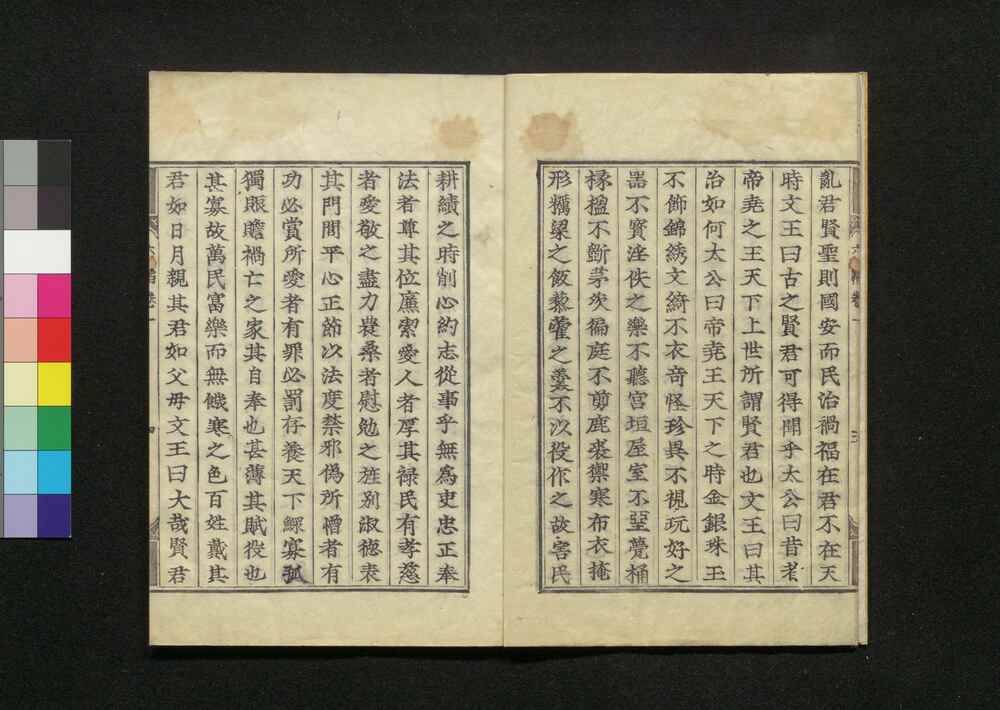 亂君賢聖則國安而民治禍福在君不在天
時文王曰古之賢君可得聞乎太公曰昔者
帝堯之王天下上世所謂賢君也文王曰其
治如何太公曰帝堯王天下之時金銀珠玉
不飾錦綉文綺不衣奇怪珍異不視玩好之
噐不寶淫佚之樂不聽宮垣屋室不堊甍桷
椽楹不斲茅茨徧庭不剪鹿裘禦寒布衣掩
形糲粱之飯藜藿之羹不以役作之故害民
耕績之時削心約志從事乎無爲吏忠正奉
法者尊其位廉索愛人者厚其祿民有孝慈
者愛敬之盡力農桑者慰勉之旌别淑德表
其門閭平心正節以法度禁邪僞所憎者有
功必賞所愛者有罪必罰存養天下鰥寡孤
獨賑贍禍亡之家其自奉也甚薄其賦役也
甚寡故萬民富樂而無饑寒之色百姓戴其
君如日月親其君如父母文王曰大哉賢君